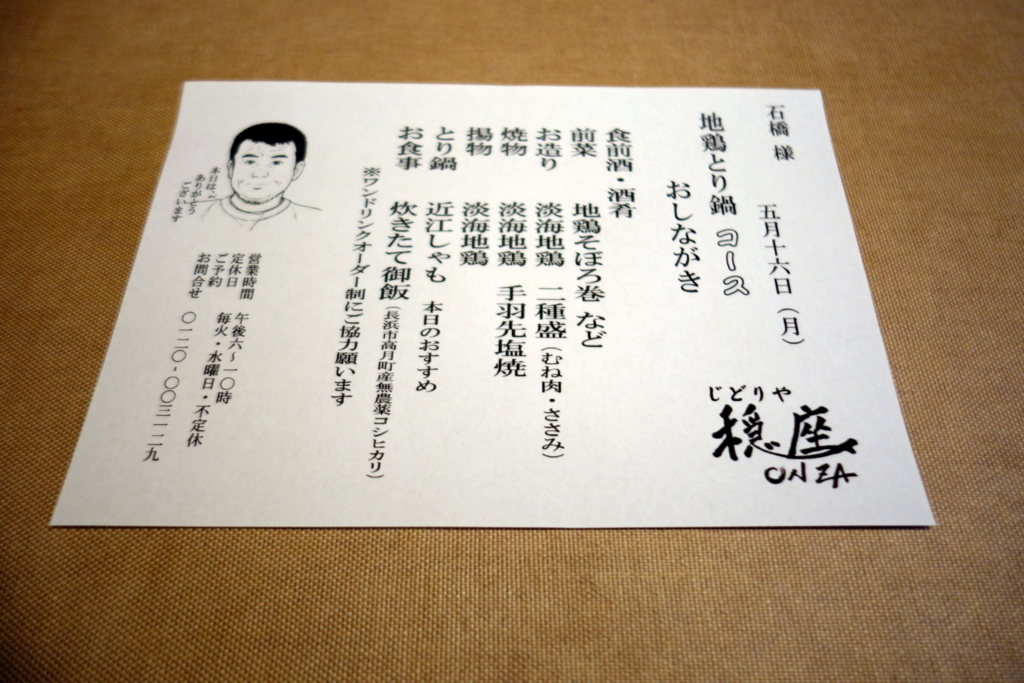 石橋 様　五月十六日（月）
地鶏とり鍋 コース
おしながき
じどりや
穏座
ONZA
食前酒・酒肴
前菜　地鶏そぼろ巻 など
お造り　淡海地鶏　二種盛（むね肉・ささみ）
焼物　淡海地鶏　手羽先塩焼
揚物　淡海地鶏
とり鍋　近江しゃも　本日のおすすめ
お食事　炊きたて御飯（長浜市高月町産無農薬コシヒカリ）
※ワンドリンクオーダー制にご協力願います
本日は、
ありがとう
ございます
営業時間　午後六～一〇時
定休日　毎火・水曜日・不定休
ご予約
お問合せ　〇一二〇-〇〇三一二九